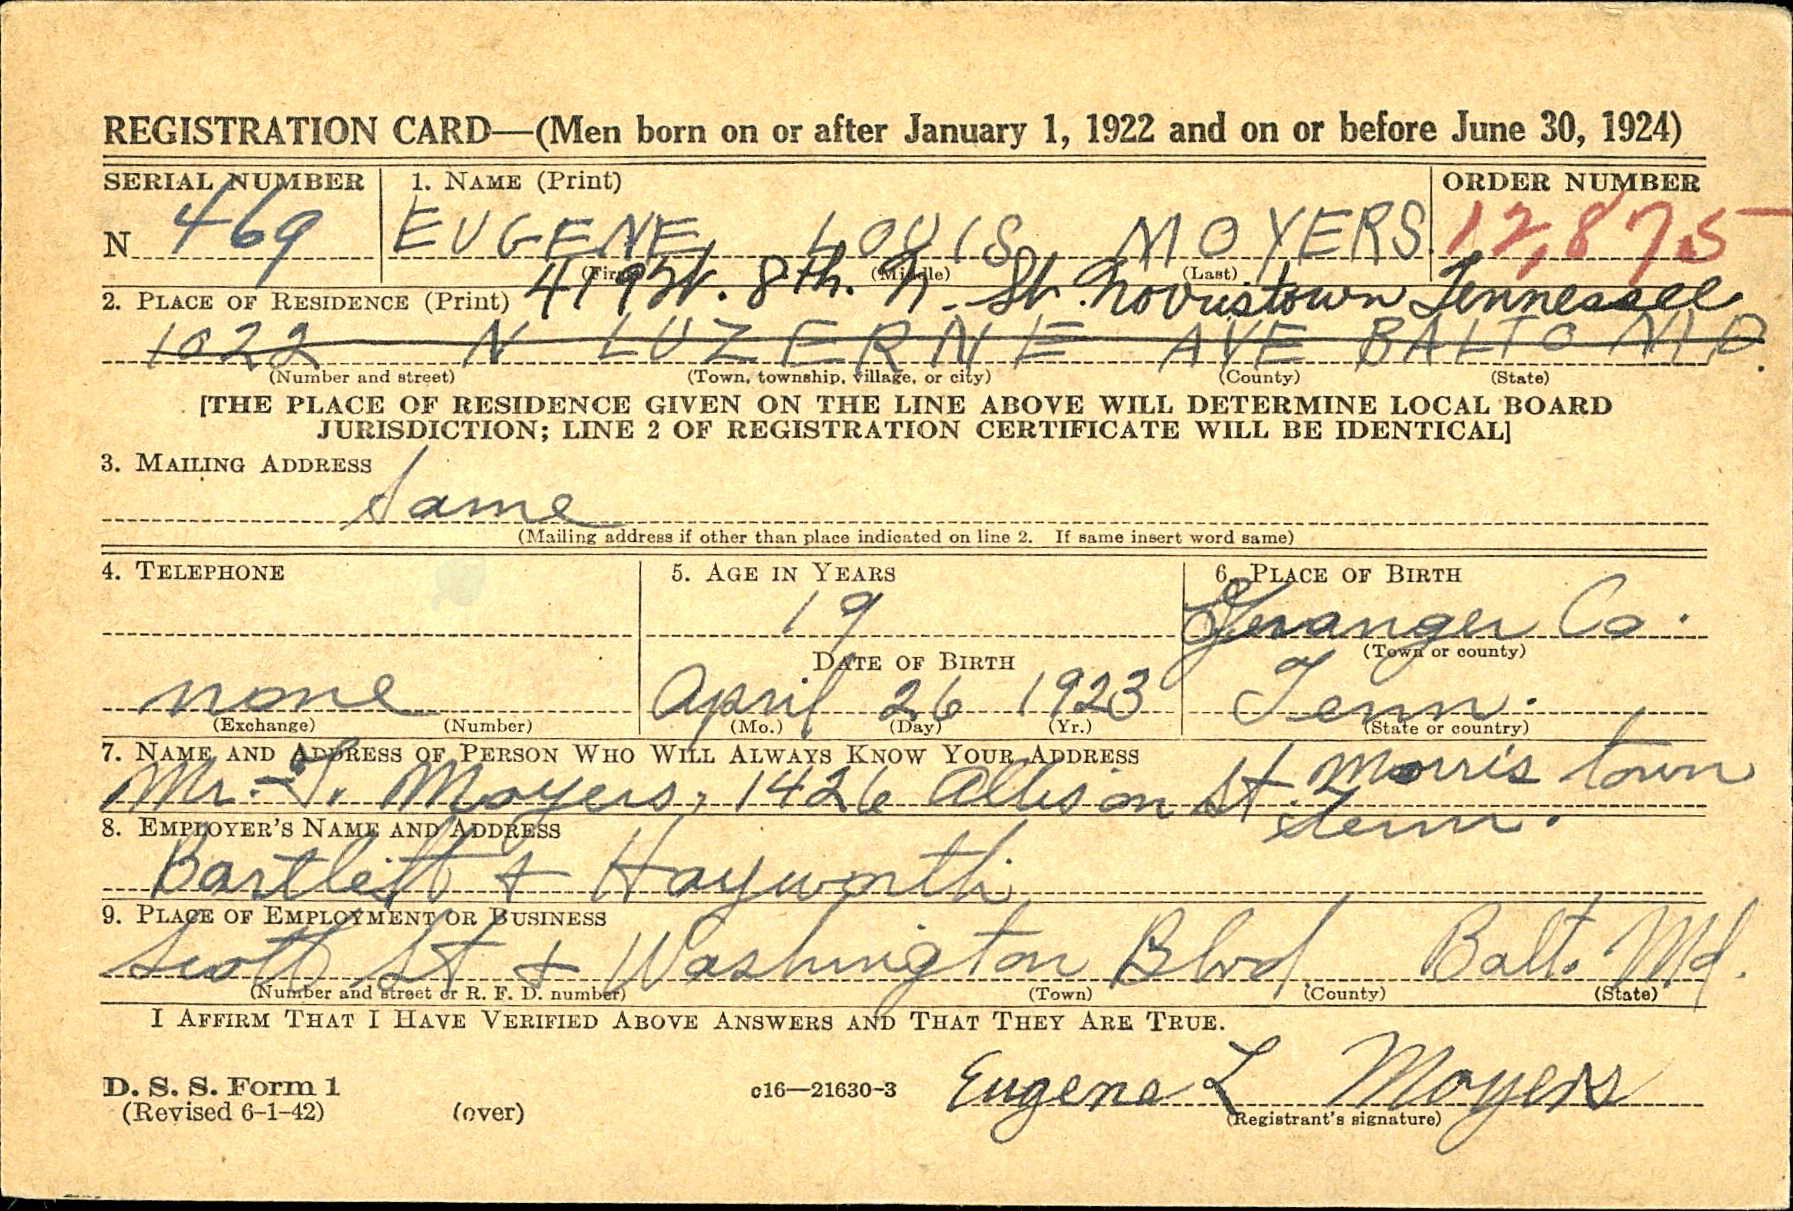 REGISTRATION CARD—(Men born on or after January 1, 1922 and on or before June 30, 1924)
SERIAL NUMBER 1. NAME (Print) ORDER NUMBER
N 469 EUGENE LOUIS MOYERS. 12,875
(First) (Middle) (Last)
419 W. 8th. N. St. Morristown Tennessee
2. PLACE OF RESIDENCE (Print)
1022 N LUZERNE AVE BALTO MD.
(Number and street) (Town, township, village, or city) (County) (State)
[THE PLACE OF RESIDENCE GIVEN ON THE LINE ABOVE WILL DETERMINE LOCAL BOARD
JURISDICTION; LINE 2 OF REGISTRATION CERTIFICATE WILL BE IDENTICAL]
3. MAILING ADDRESS
Same
(Mailing address if other than place indicated on line 2. If same insert word same)
4. TELEPHONE 5. AGE IN YEARS 6. PLACE OF BIRTH
19 Granger Co.
(Town or county)
DATE OF BIRTH
none April 26 1923 Tenn.
(Exchange) (Number) (Mo.) (Day) (Yr.) (State or country)
7. NAME AND ADDRESS OF PERSON WHO WILL ALWAYS KNOW YOUR ADDRESS
Mr. Moyers, 1426 Allison St. Morris town
Tenn.
8. EMPLOYER'S NAME AND ADDRESS
Bartlett & Hayworth
9. PLACE OF EMPLOYMENT OR BUSINESS
Scott St & Washington Blvd Balto Md.
(Number and street or R. F. D. number) (Town) (County) (State)
I AFFIRM THAT I HAVE VERIFIED ABOVE ANSWERS AND THAT THEY ARE TRUE.
Eugene L Moyers
D. S. S. Form 1 c16—21630-3
(Revised 6-1-42) (over) (Registrant's signature)